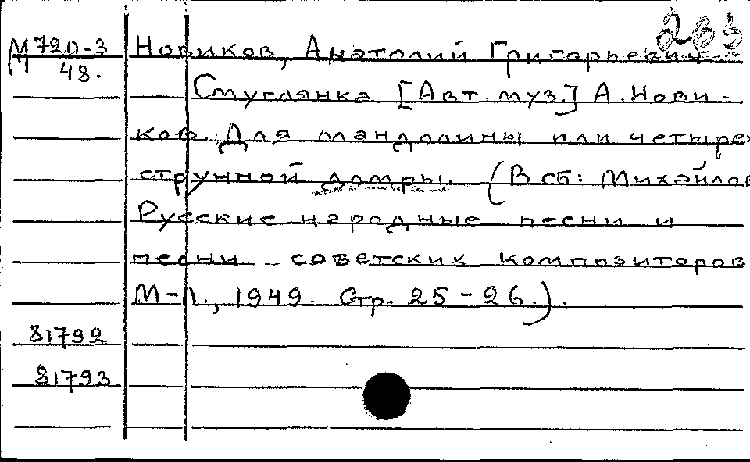 263
М 720-3 Новиков, Анатолий Григорьевич
48.
Смуглянка [Авт. муз.] А. Нови-
ков. Для мандолины или четырех
струнной домры. (В сб: Михайлов
Русские народные песни и
песни советских композиторов
М-Л., 1949. Стр. 25-26.).
81792
81793